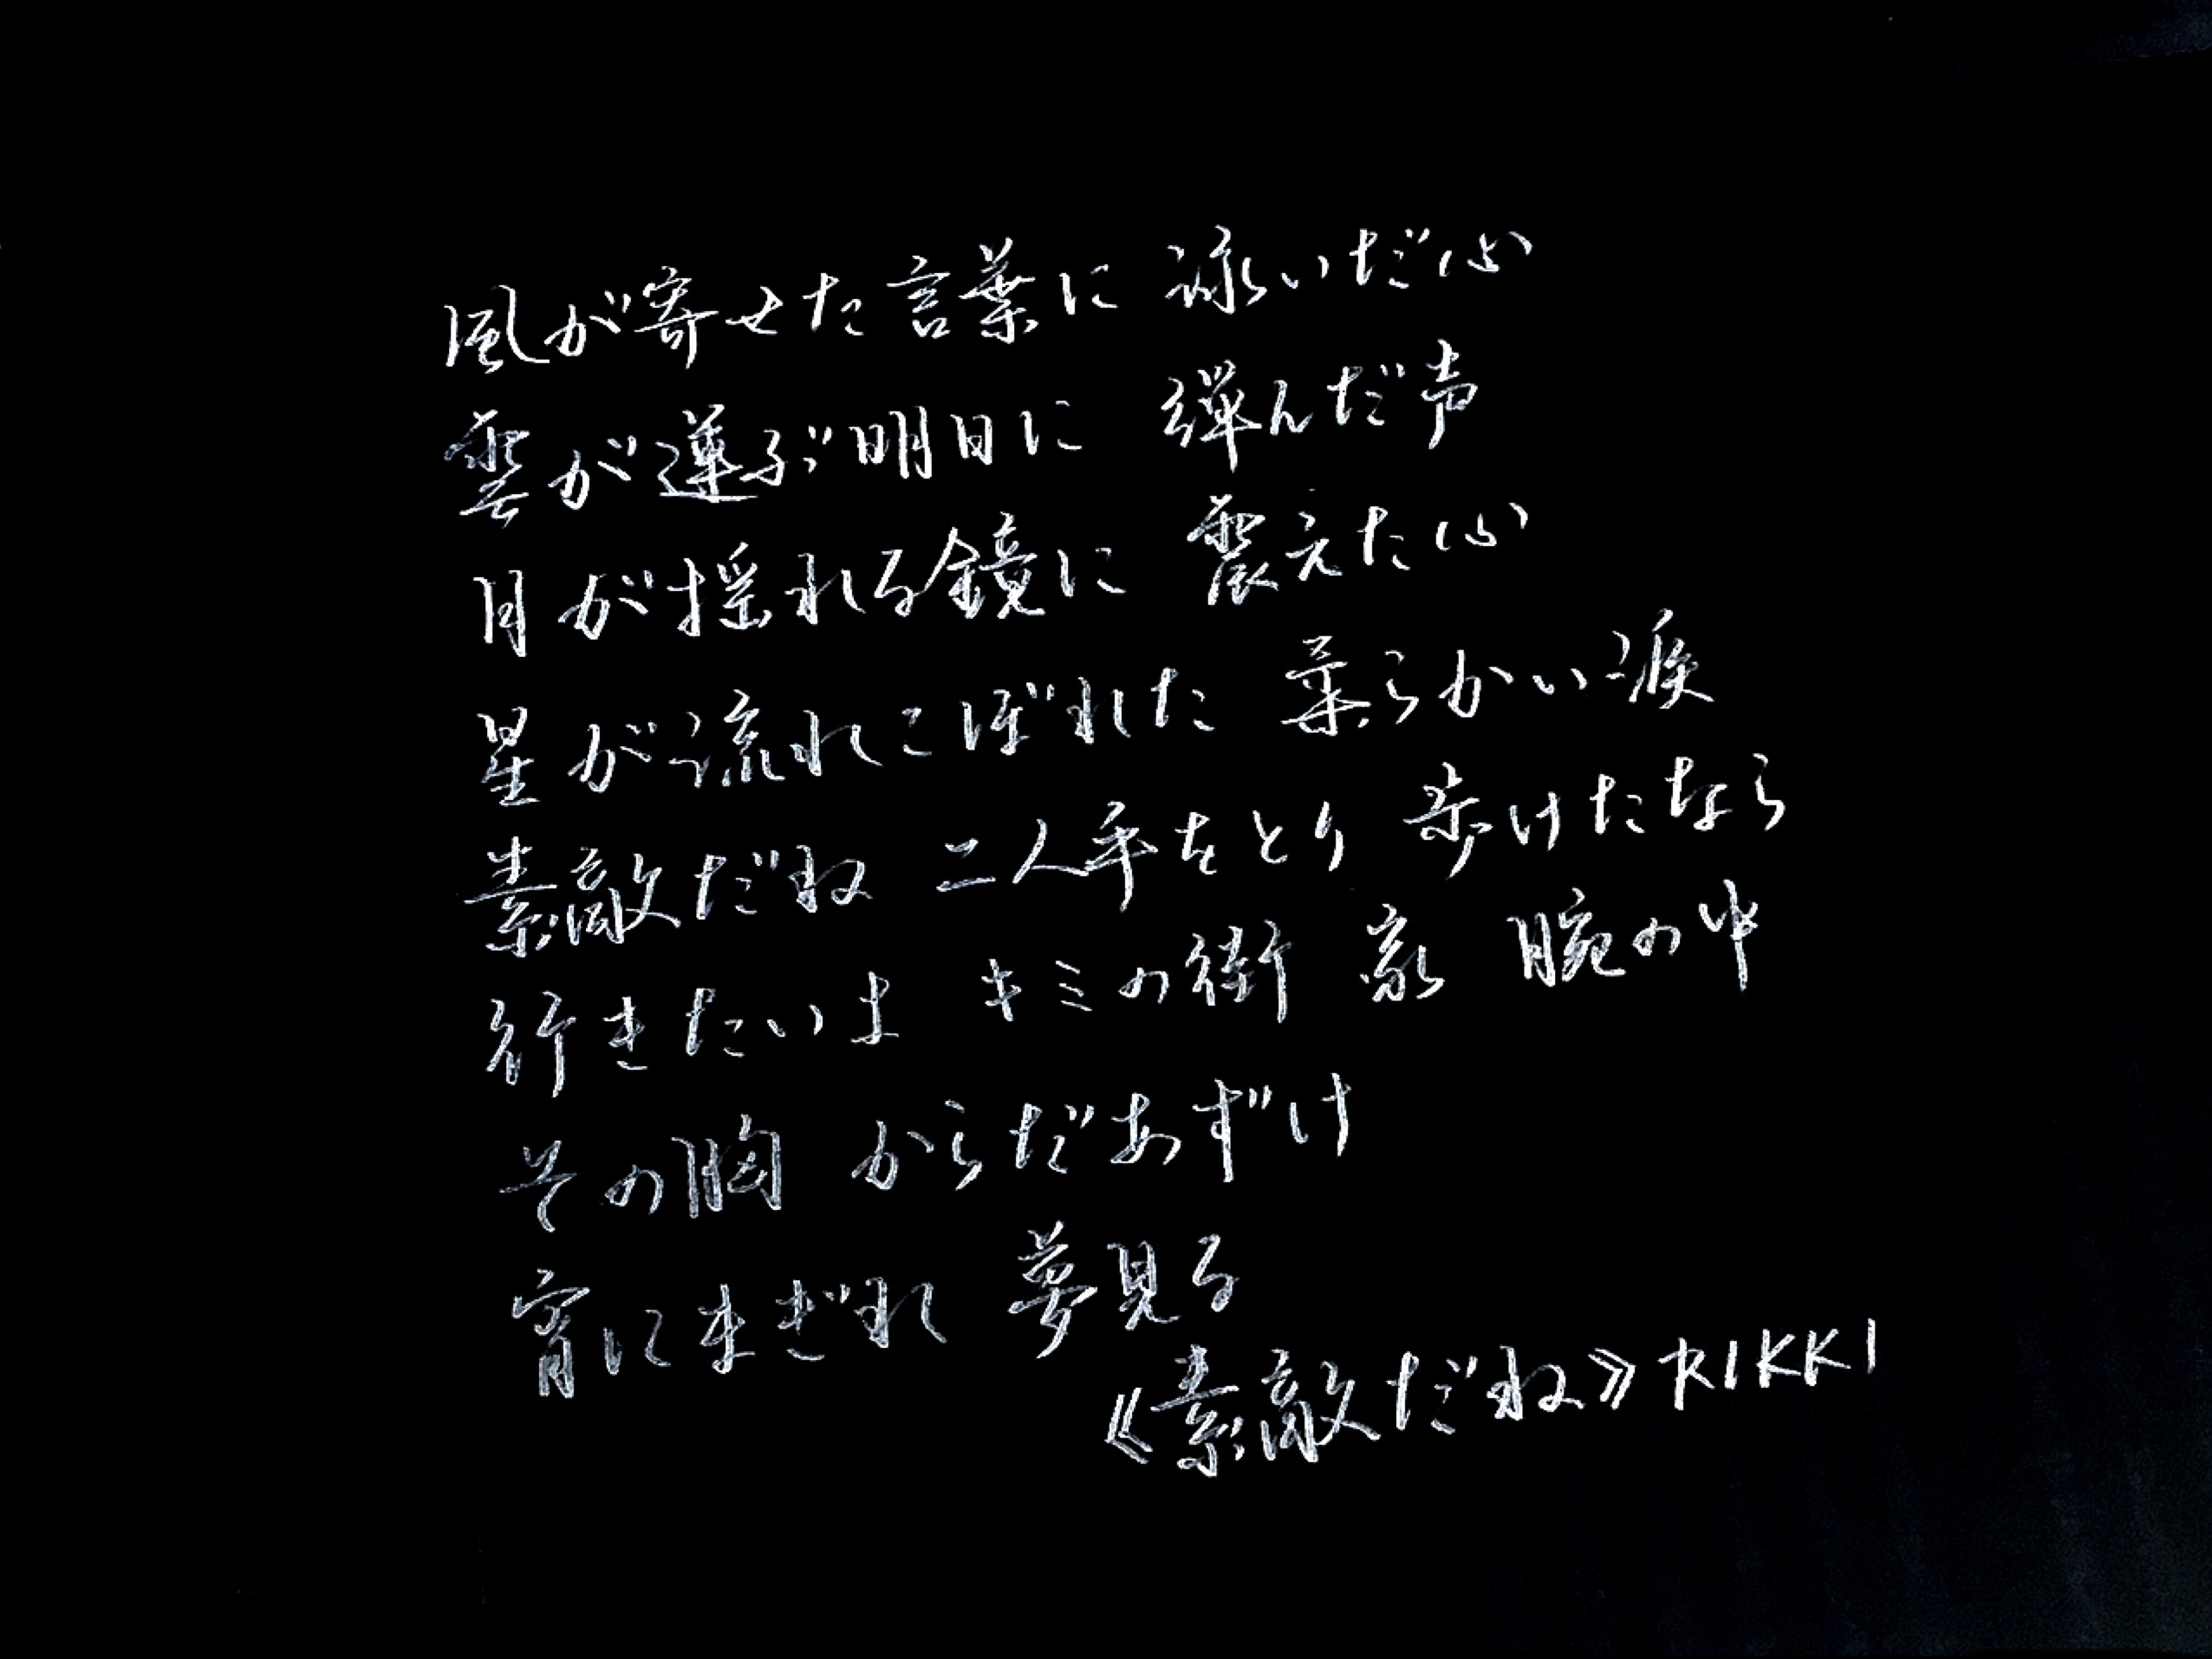 風が寄せた言葉に 泳いだ心
雲が運ぶ明日に 弾んだ声
月が揺れる鏡に 震えた心
星が流れこぼれた 柔らかい涙
素敵だね 二人手をとり 歩けたなら
行きたいよ キミの街 家 腕の中
その胸 からだあずけ
宵にまぎれ 夢見る
《素敵だね》RIKKI